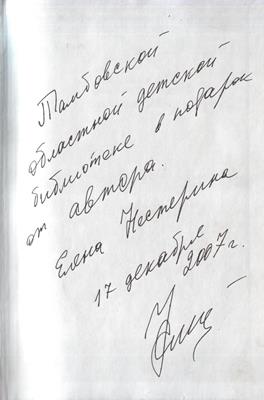 Тамбовской
областной детской
библиотеке в подарок
от автора.
Елена Нестерина
17 декабря
2007г.